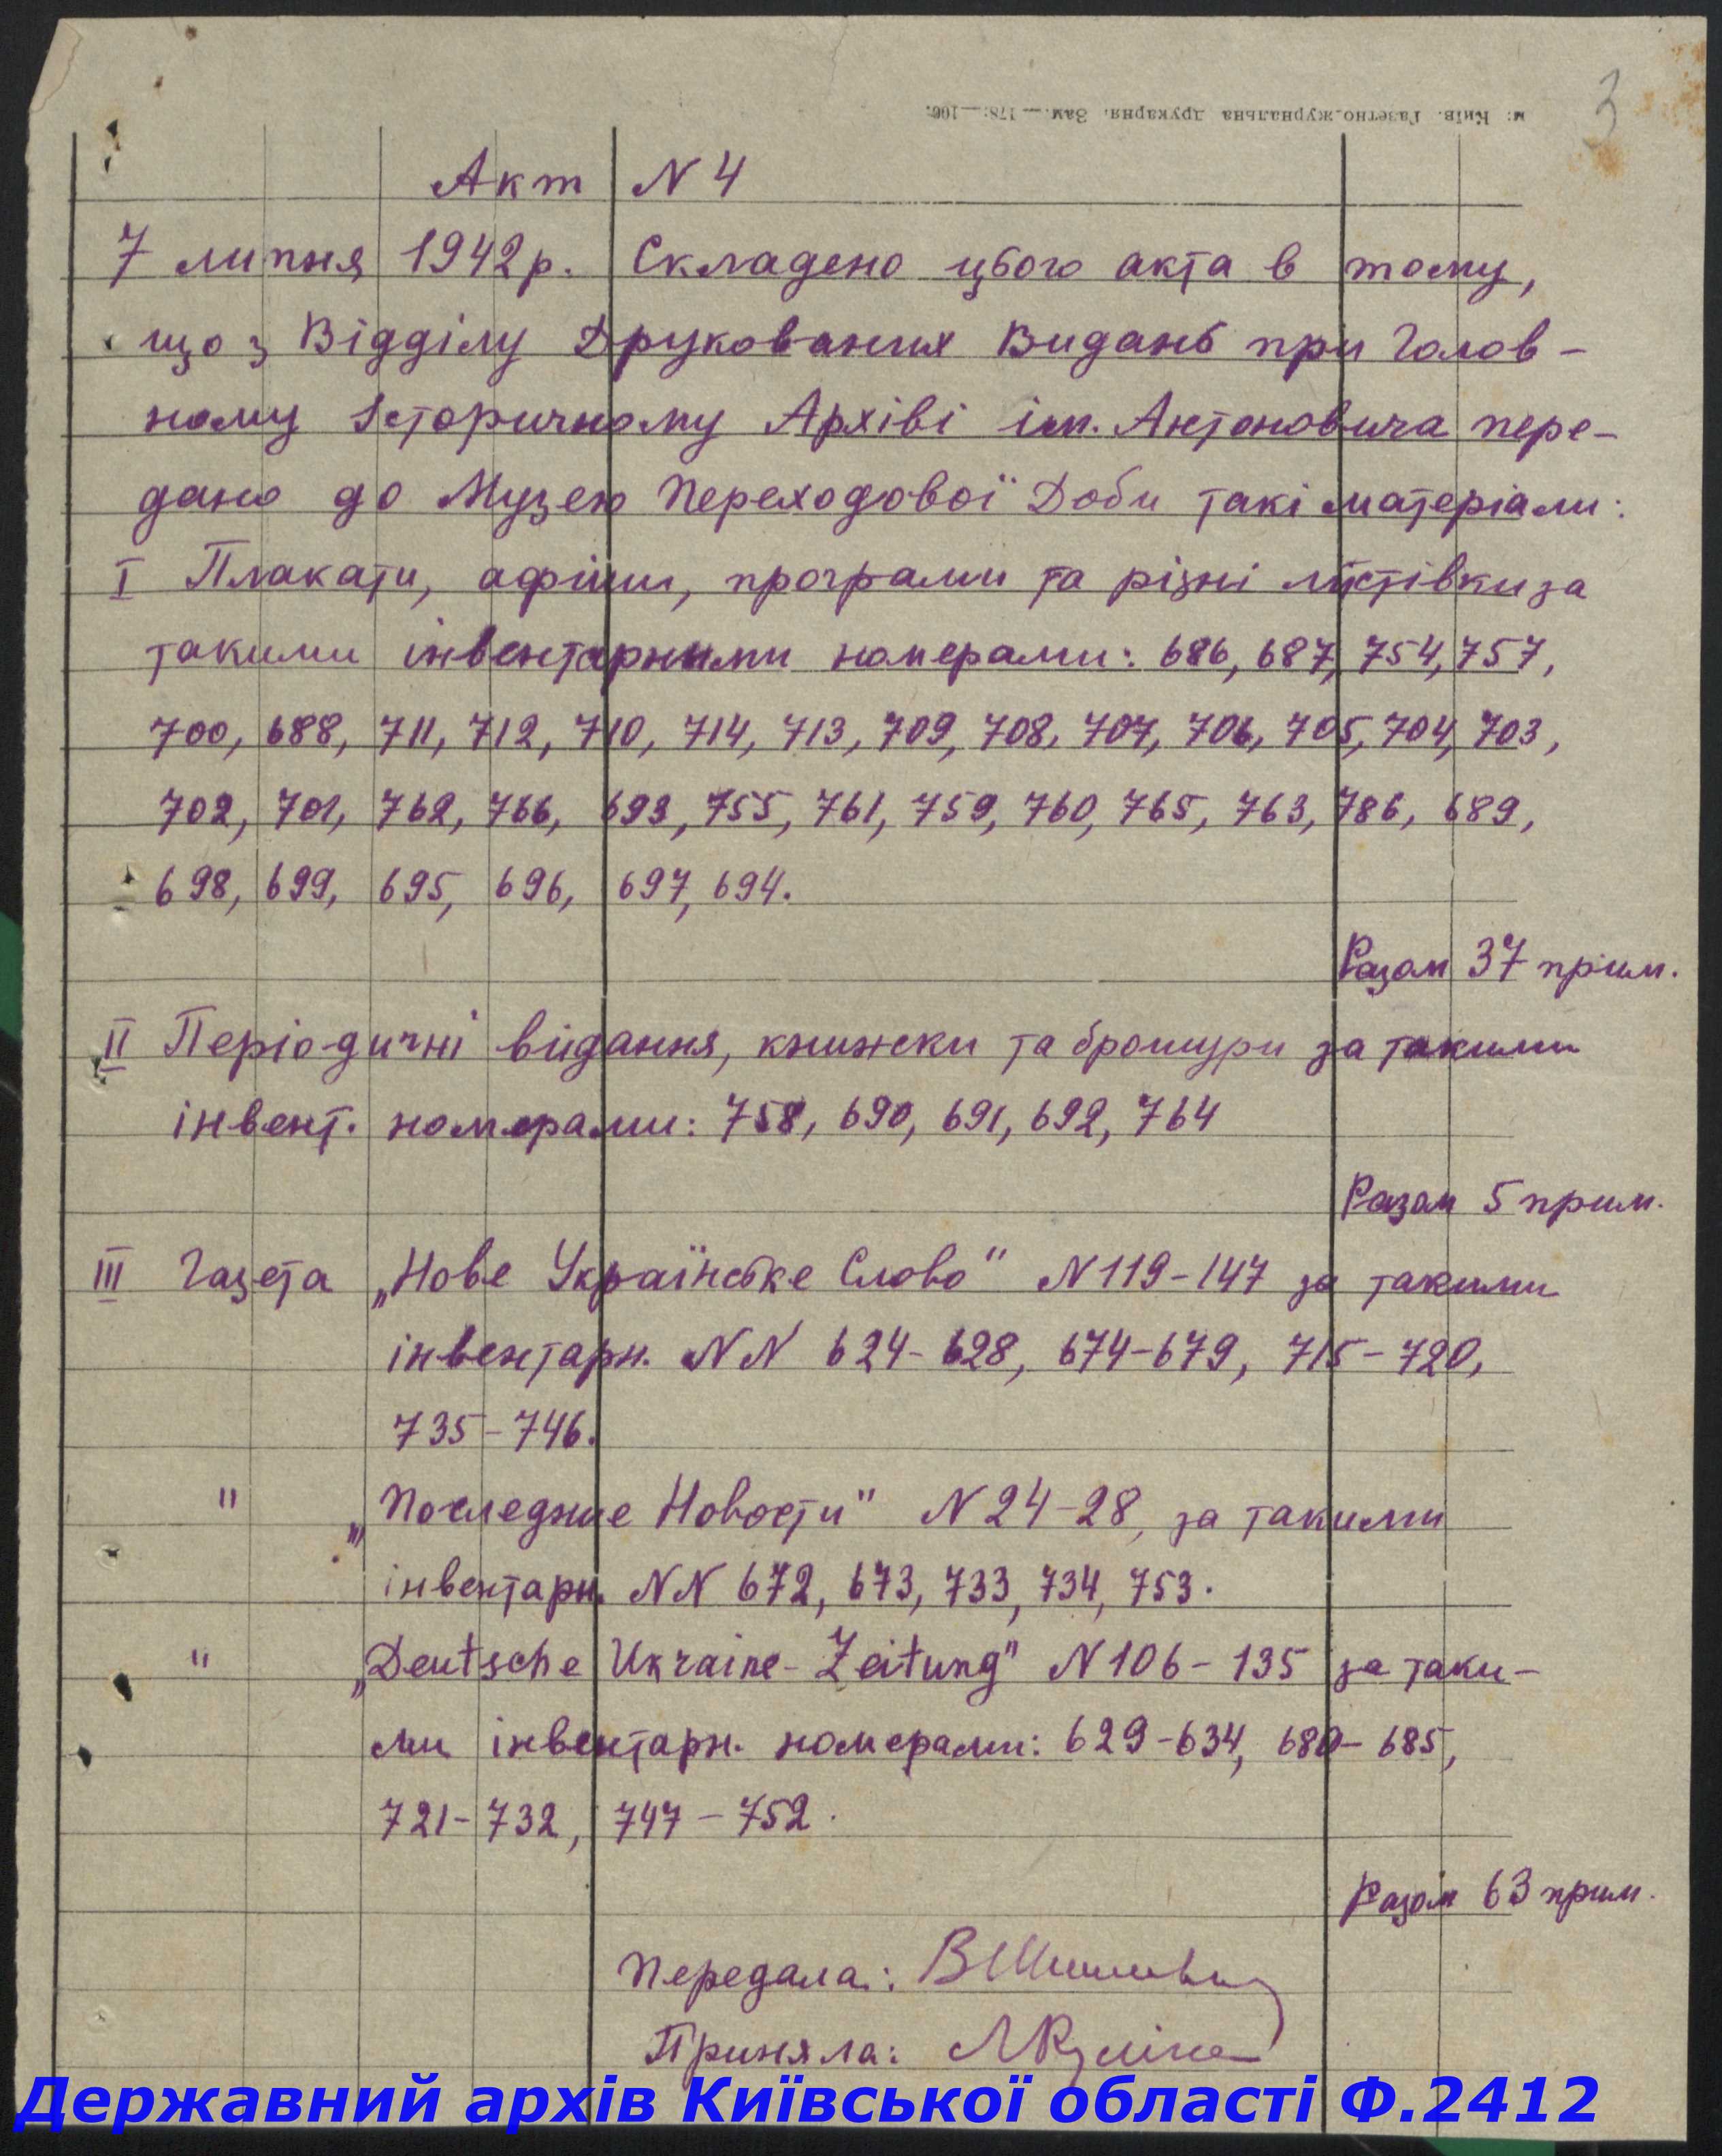 3
м. Київ. Газетно-журнальна друкарня. Зам. — 178. — 100.
Акт N 4
7 липня 1942 р. Складено цього акта в тому,
що з Відділу Друкованих Видань при Голов-
ному Історичному Архіві ім. Антоновича пере-
дано до Музею Переходової Доби такі матеріали:
I Плакати, афіши, програми та різні листівки за
такими інвентарними номерами: 686, 687, 754, 757,
700, 688, 711, 712, 710, 714, 713, 709, 708, 707, 706, 705, 704, 703,
702, 701, 762, 766, 693, 755, 761, 759, 760, 765, 763, 786, 689,
698, 699, 695, 696, 697, 694.
Разом 37 прим.
II Періодичні видання, книжки та брошури за такими
інвент. номерами: 758, 690, 691, 692, 764
Разом 5 прим.
III Газета „Нове Українське Слово" N 119-147 за такими
інвентарн. NN 624-628, 674-679, 715-720,
735-746.
" „Последние Новости" N 24-28, за такими
інвентарн. NN 672, 673, 733, 734, 753.
" „Deutsche Ukraine-Zeitung" N 106-135 за таки-
ми інвентарн. номерами: 629-634, 680-685,
721-732, 747-752.
Разом 63 прим.
Передала:
Приняла:
Державний архів Київської області Ф.2412